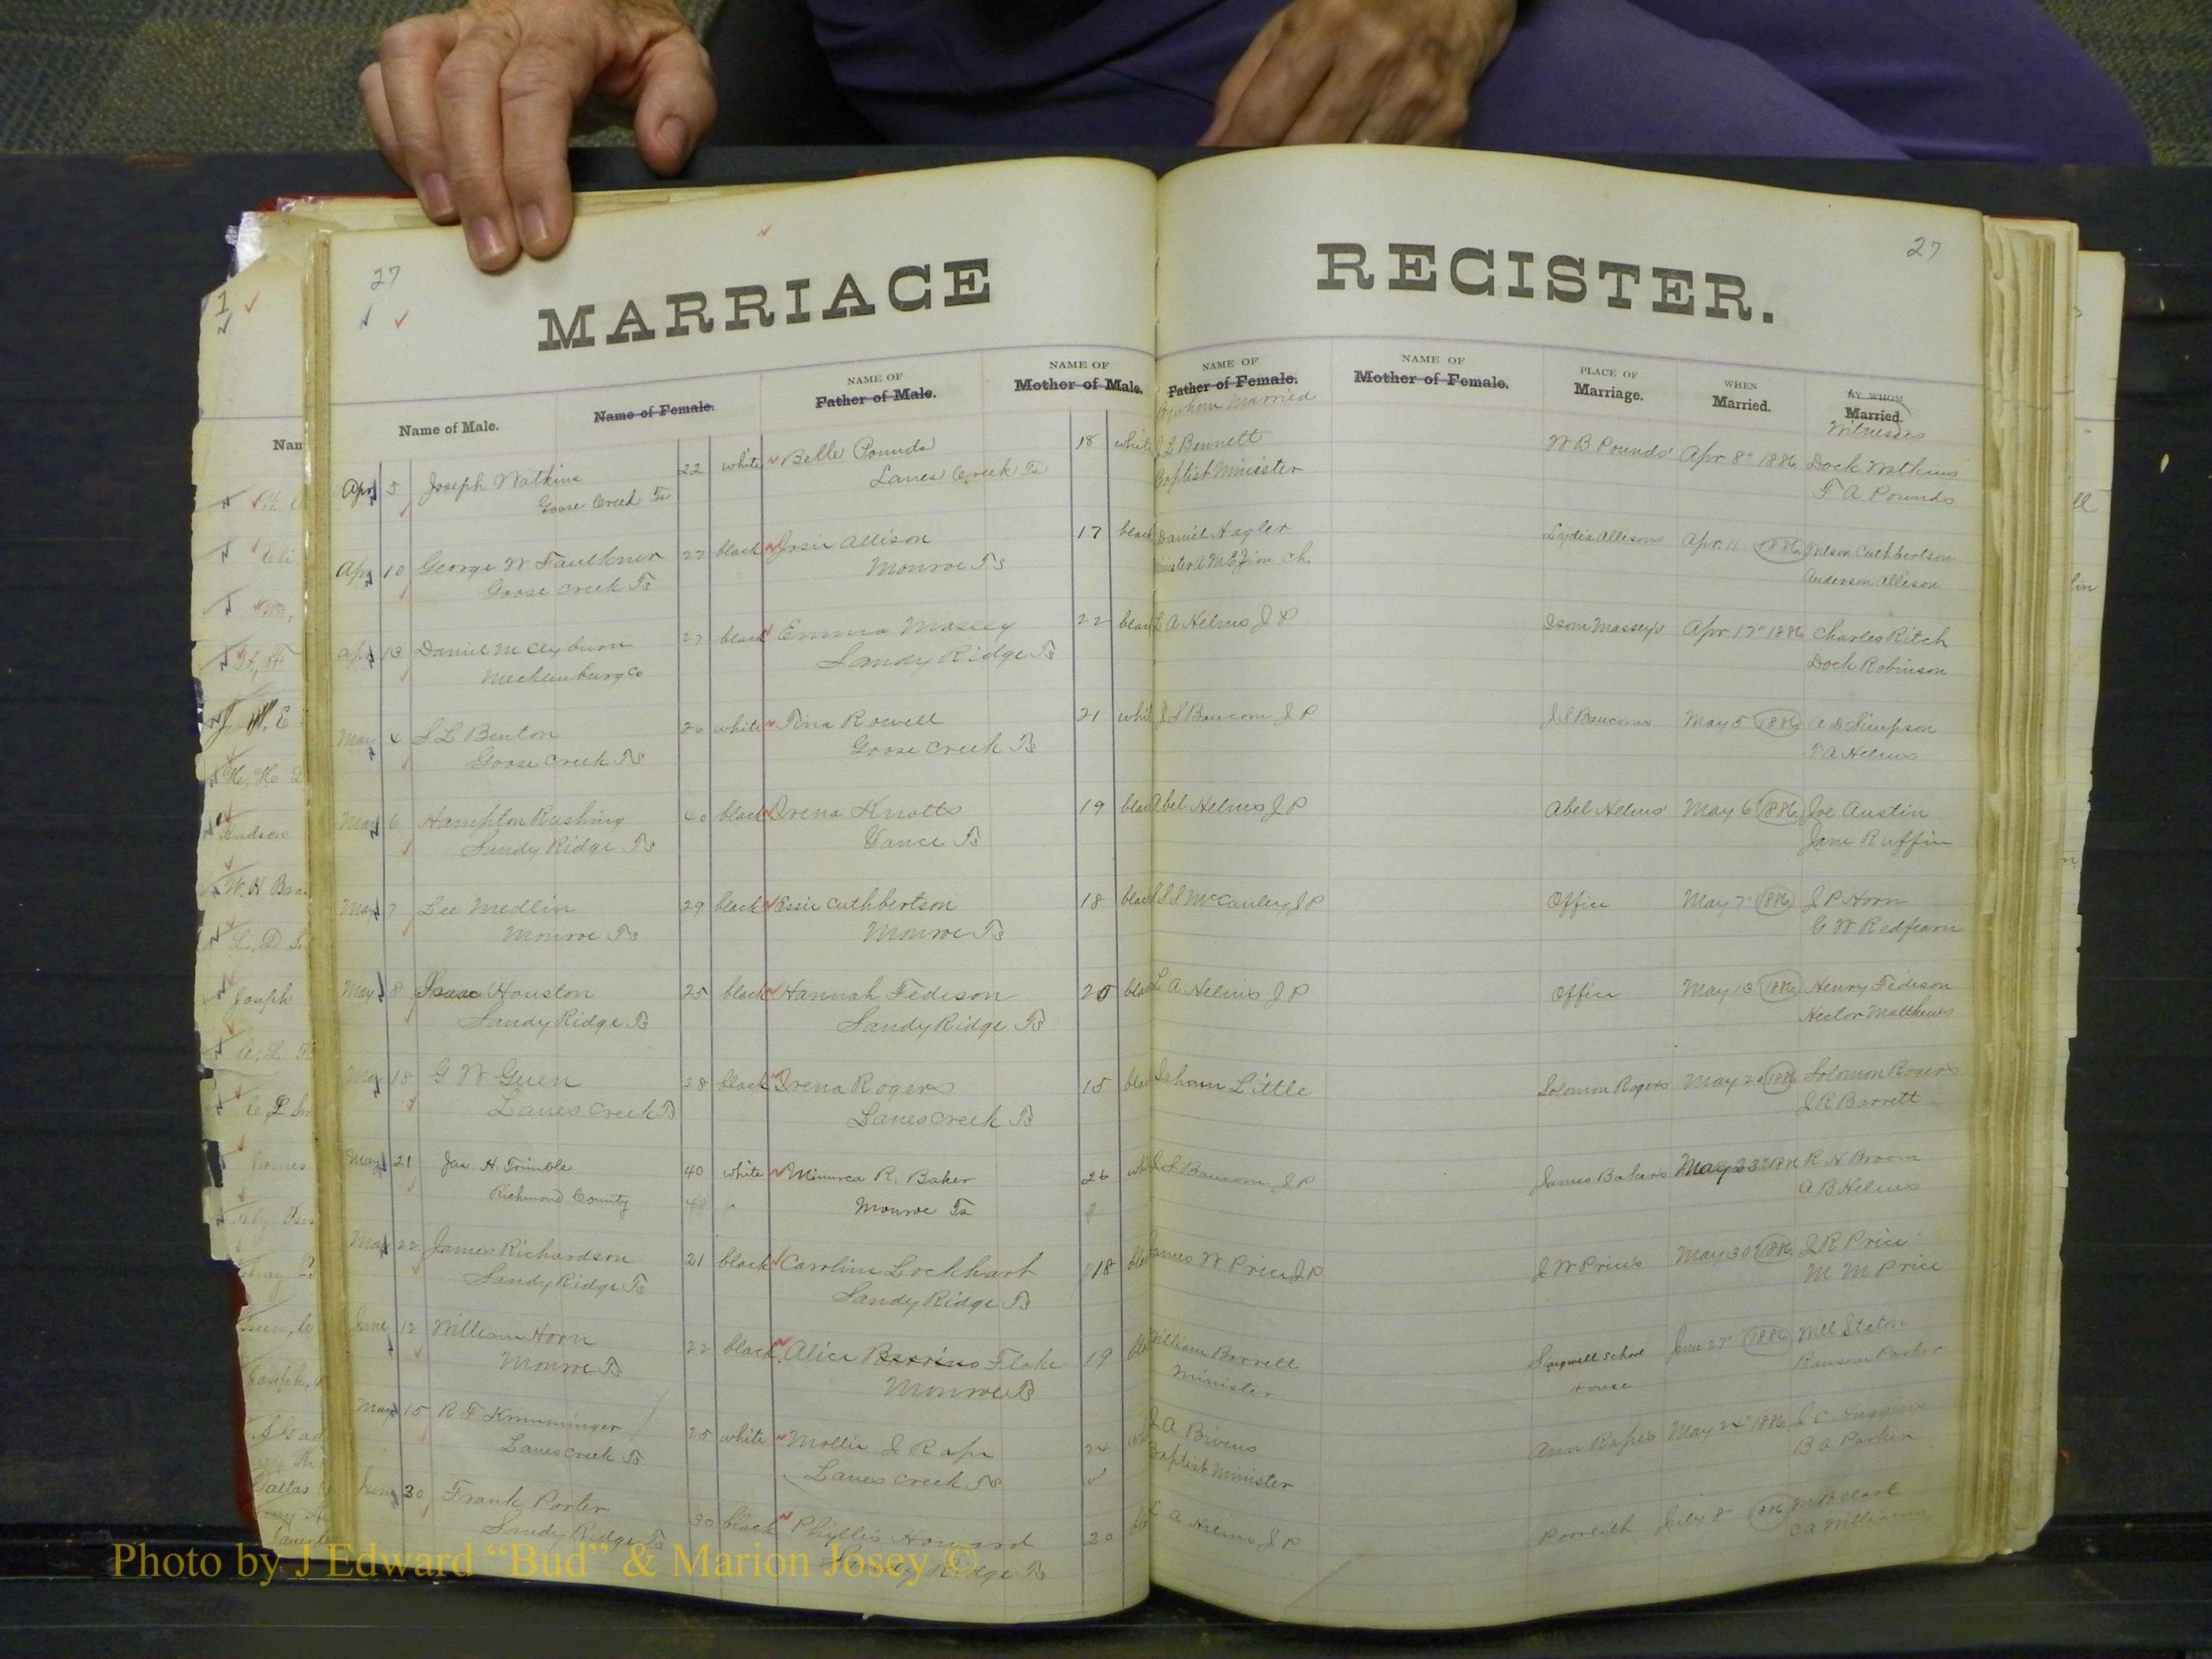 27
27
MARRIAGE REGISTER.
Name of Male.
Name of Female.
NAME OF
Father of Male.
NAME OF
Mother of Male.
NAME OF
Father of Female.
By whom Married
NAME OF
Mother of Female.
PLACE OF
Marriage.
WHEN
Married.
BY WHOM
Married.
Witnesses
Apr 5 Joseph Watkins 22 white Belle Pounds 18 white J L Bennett W B Pounds' Apr 8" 1886 Dock Watkins
Goose Creek Ts Lanes Creek Ts Baptist Minister F A Pounds
Apr 10 George W Faulkner 27 black Josie Allison 17 black Daniel Hagler Lydia Allisons Apr 11 1886 Wilson Cuthbertson
Goose Creek Ts Monroe Ts Minister A M E Zion Ch. Anderson Allison
Apr 13 Daniel M Clyburn 27 black Emma Massey 22 black L A Helms J P Isom Massey's Apr 17" 1886 Charles Ritch
Mecklenburg Co Sandy Ridge Ts Dock Robinson
May 4 S L Benton 26 white Tina Rowell 21 white J S Baucom J P J S Baucoms May 5 1886 A D Simpson
Goose Creek Ts Goose Creek Ts T A Helms
May 6 Hampton Rushing 40 black Irena Knotts 19 black Abel Helms J P Abel Helms' May 6 1886 Joe Austin
Sandy Ridge Ts Vance Ts Jane Ruffin
May 7 Lee Medlin 29 black Essie Cuthbertson 18 black S S McCauley J P Office May 7" 1886 J P Horn
Monroe Ts Monroe Ts G W Redfearn
May 8 Isaac Houston 25 black Hannah Fedison 20 black L A Helms J P Office May 13 1886 Henry Fedison
Sandy Ridge Ts Sandy Ridge Ts Hector Matthews
May 18 G W Guen 28 black Irena Rogers 15 black Isham Little Solomon Rogers May 20 1886 Solomon Rogers
Lanes Creek Ts Lanes Creek Ts J R Barrett
May 21 Jas. H. Trimble 40 white Minurca R. Baker 26 white J S Baucom J P James Bakers May 23" 1886 R H Broom
Richmond County 40 " Monroe Ts A B Helms
May 22 James Richardson 21 black Caroline Lockhart 18 black James W Price J P J W Price's May 30" 1886 J R Price
Sandy Ridge Ts Sandy Ridge Ts M M Price
June 12 William Horn 22 black Alice Perrins Flake 19 black William Barrett June 27" 1886 Will Staton
Monroe Ts Monroe Ts Minister School House Ransom Parker
May 15 R F Krimminger 25 white Mollie J Rape 24 J A Bivens Ann Rape's May 24" 1886 J C Huggins
Lanes Creek Ts Lanes Creek Ts Baptist Minister B A Parker
June 30 Frank Porter 30 black Phyllis Howard 20 L A Helms J P July 8" 1886 M B Clark
Sandy Ridge Ts Sandy Ridge Ts C A Williams
Photo by J Edward “Bud” & Marion Josey ©